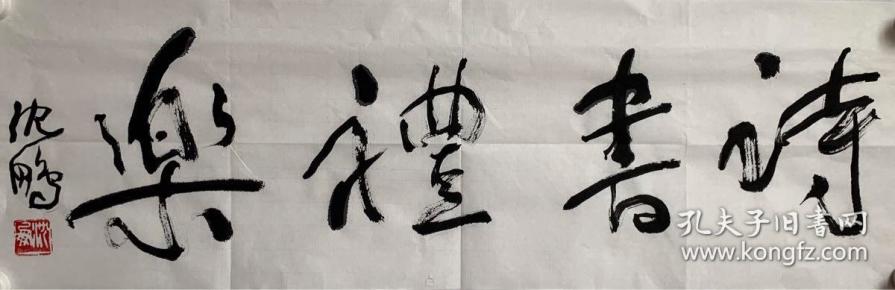 詩書禮樂
沈鵬
孔夫子旧书网
www.kongfz.com